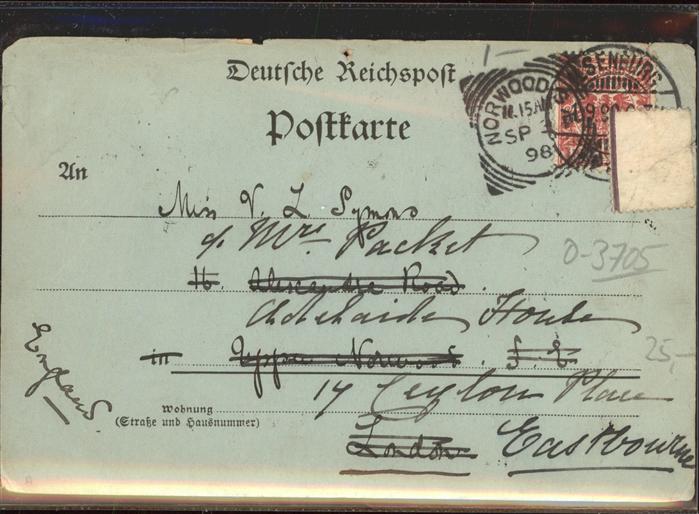 1-
Deutsche Reichspost
Postkarte
NORWOOD
11.15AM
SP
98
SENBURG
An
Miss V. L. Symons
c/o Mrs Packet
0-3705
16. Alexandra Road.
Adelaide House
in Upper Norwood. S. E.
25,-
17 Ceylon Place
England
Wohnung
(Straße und Hausnummer)
London Eastbourne